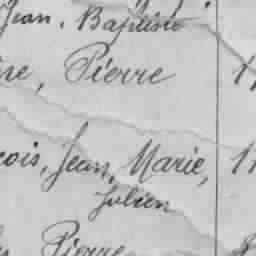 Jean, Baptiste
Pierre
Jean, Marie,
Julien
Pierre